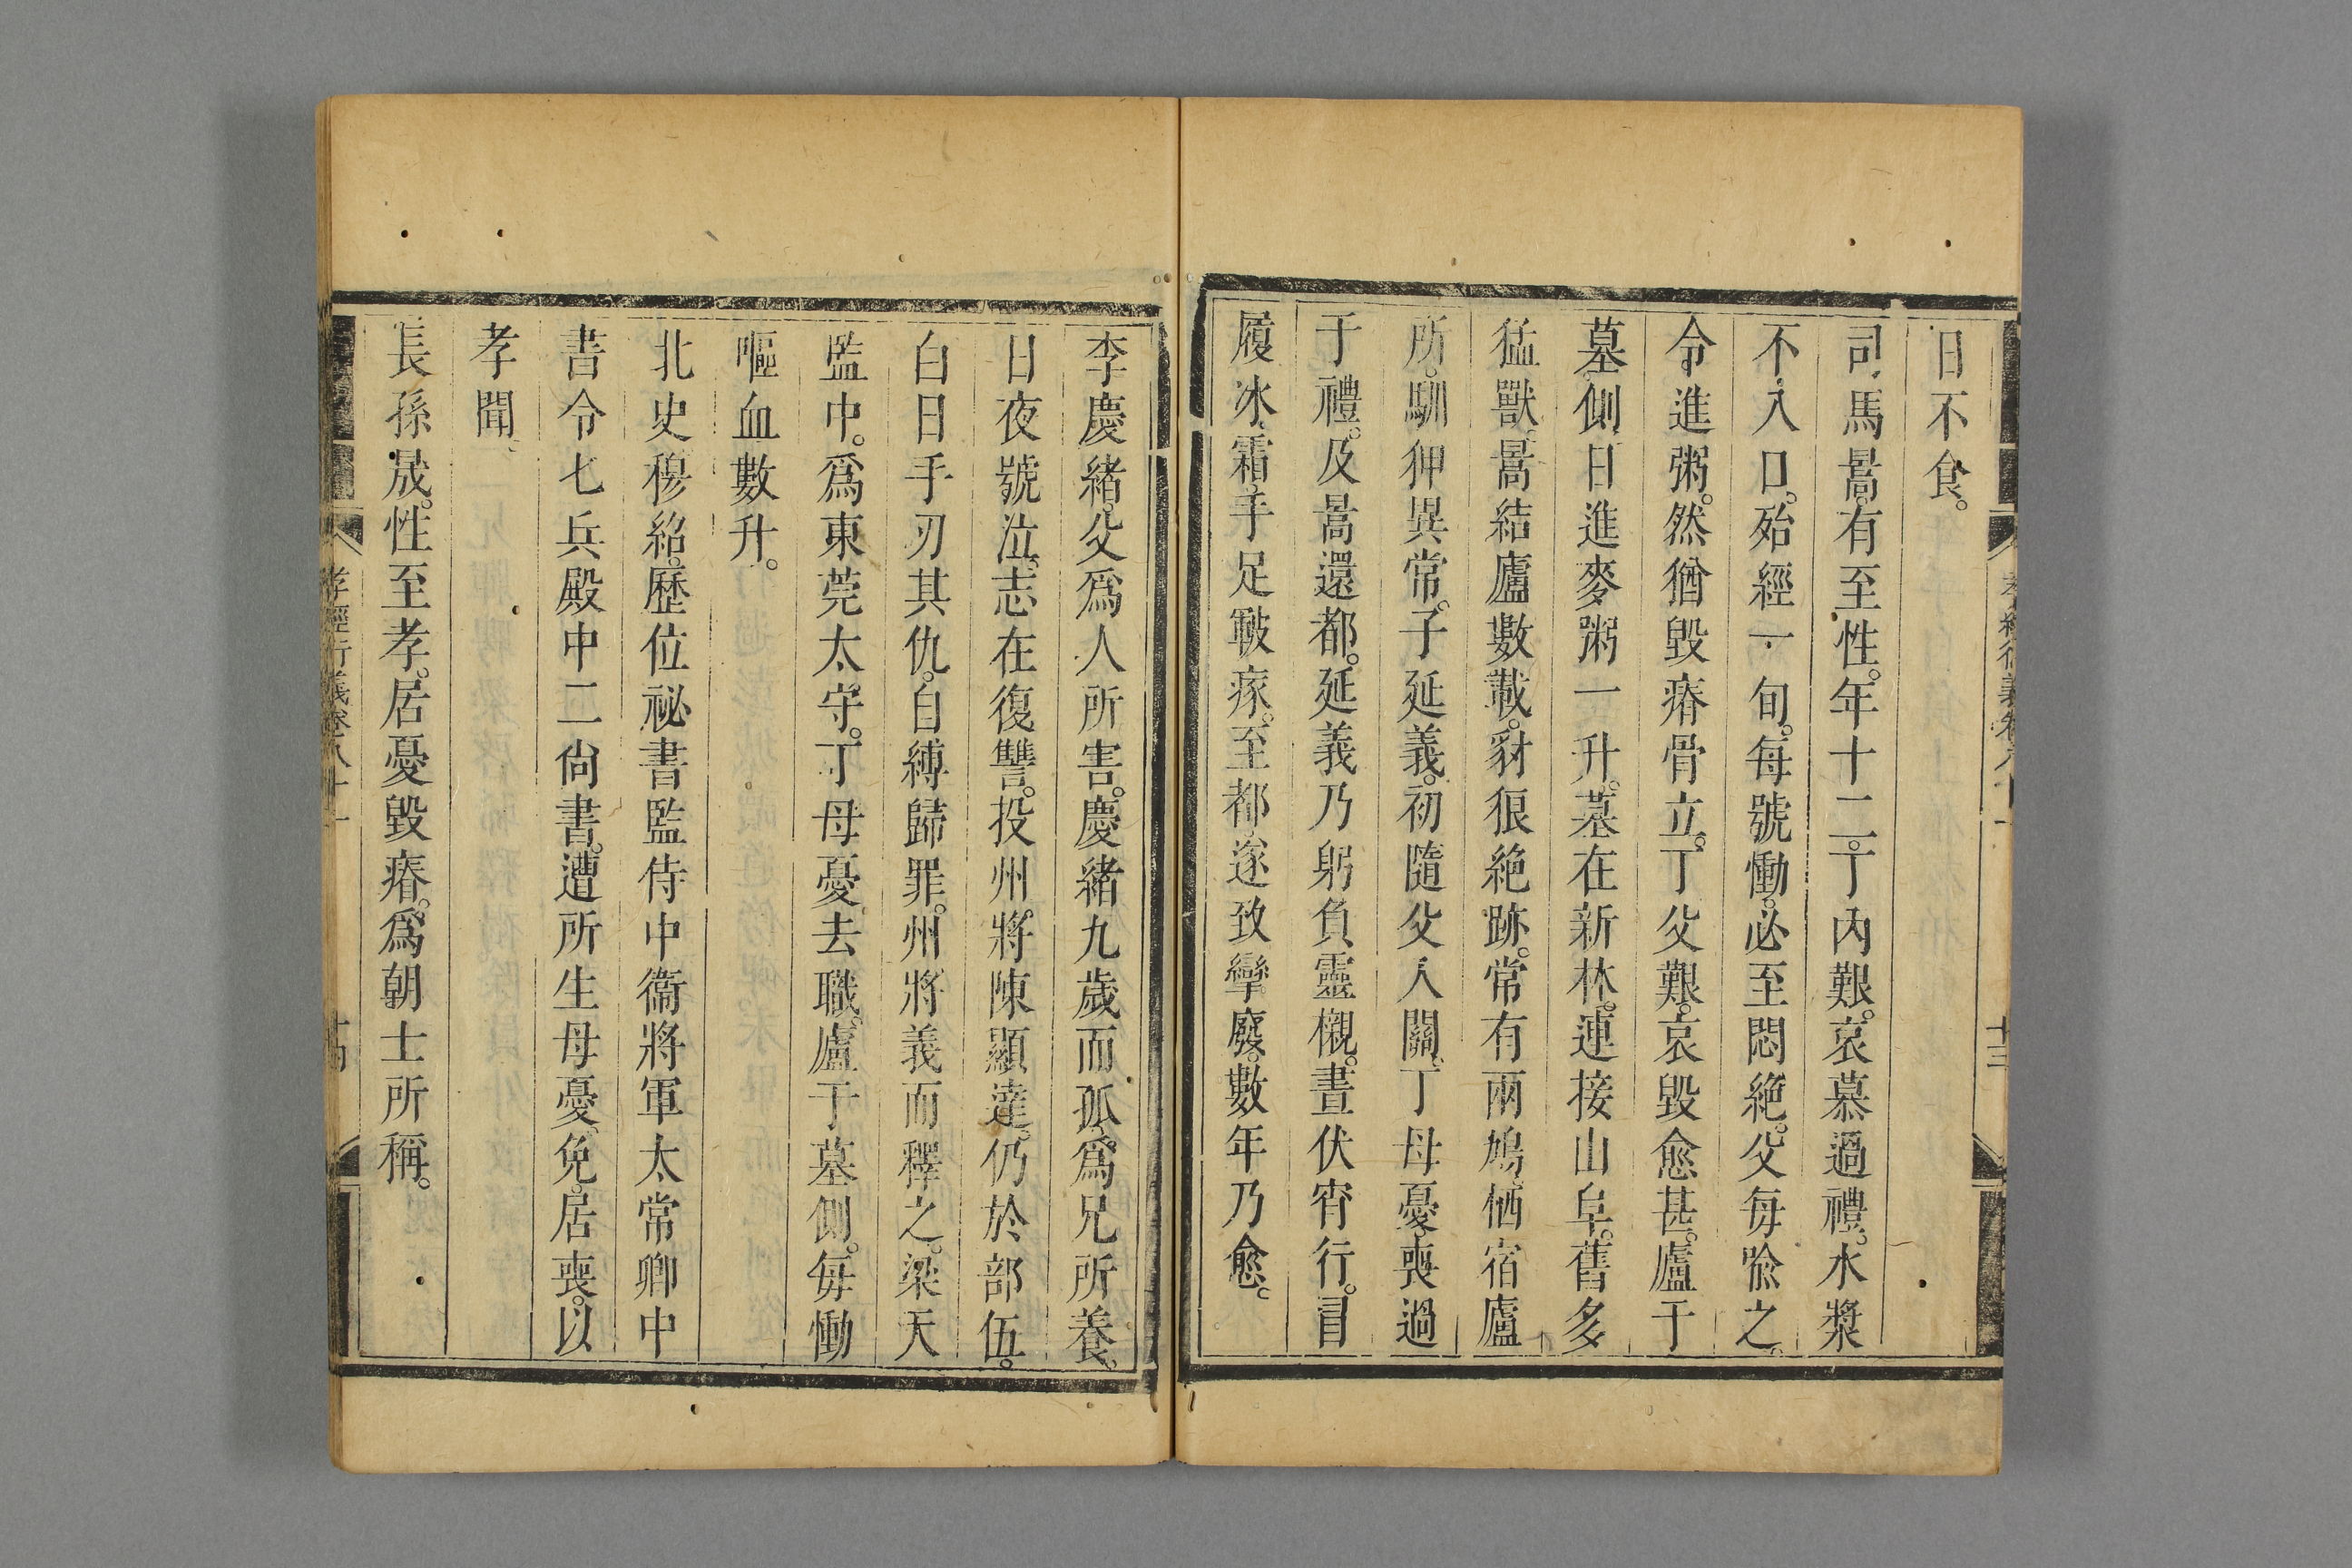 孝經衍義卷八十一 十三
日不食。
司馬暠。有至性。年十二。丁內艱。哀慕過禮。水漿
不入口。殆經一旬。每號慟。必至悶絕。父每喩之。
令進粥。然猶毀瘠骨立。丁父艱。哀毀愈甚。廬于
墓側。日進麥粥一升。墓在新林。連接山阜。舊多
猛獸。暠結廬數載。豺狼絶跡。常有兩鳩。栖宿廬
所。馴狎異常。子延義。初隨父入關。丁母憂。喪過
于禮。及暠還都。延義乃躬負靈櫬。晝伏宵行。冒
履冰霜。手足皸瘃。至都。遂致攣廢。數年乃愈。
李慶緒。父爲人所害。慶緒九歲而孤。爲兄所養。
日夜號泣。志在復讐。投州將陳顯達。仍於部伍。
白日手刃其仇。自縛歸罪。州將義而釋之。梁天
監中。爲東莞太守。丁母憂去職。廬于墓側。每慟
嘔血數升。
北史穆紹。歷位祕書監侍中衞將軍太常卿中
書令七兵殿中二尙書。遭所生母憂。免。居喪。以
孝聞。
長孫晟。性至孝。居憂毀瘠。爲朝士所稱。
孝經衍義卷八十一